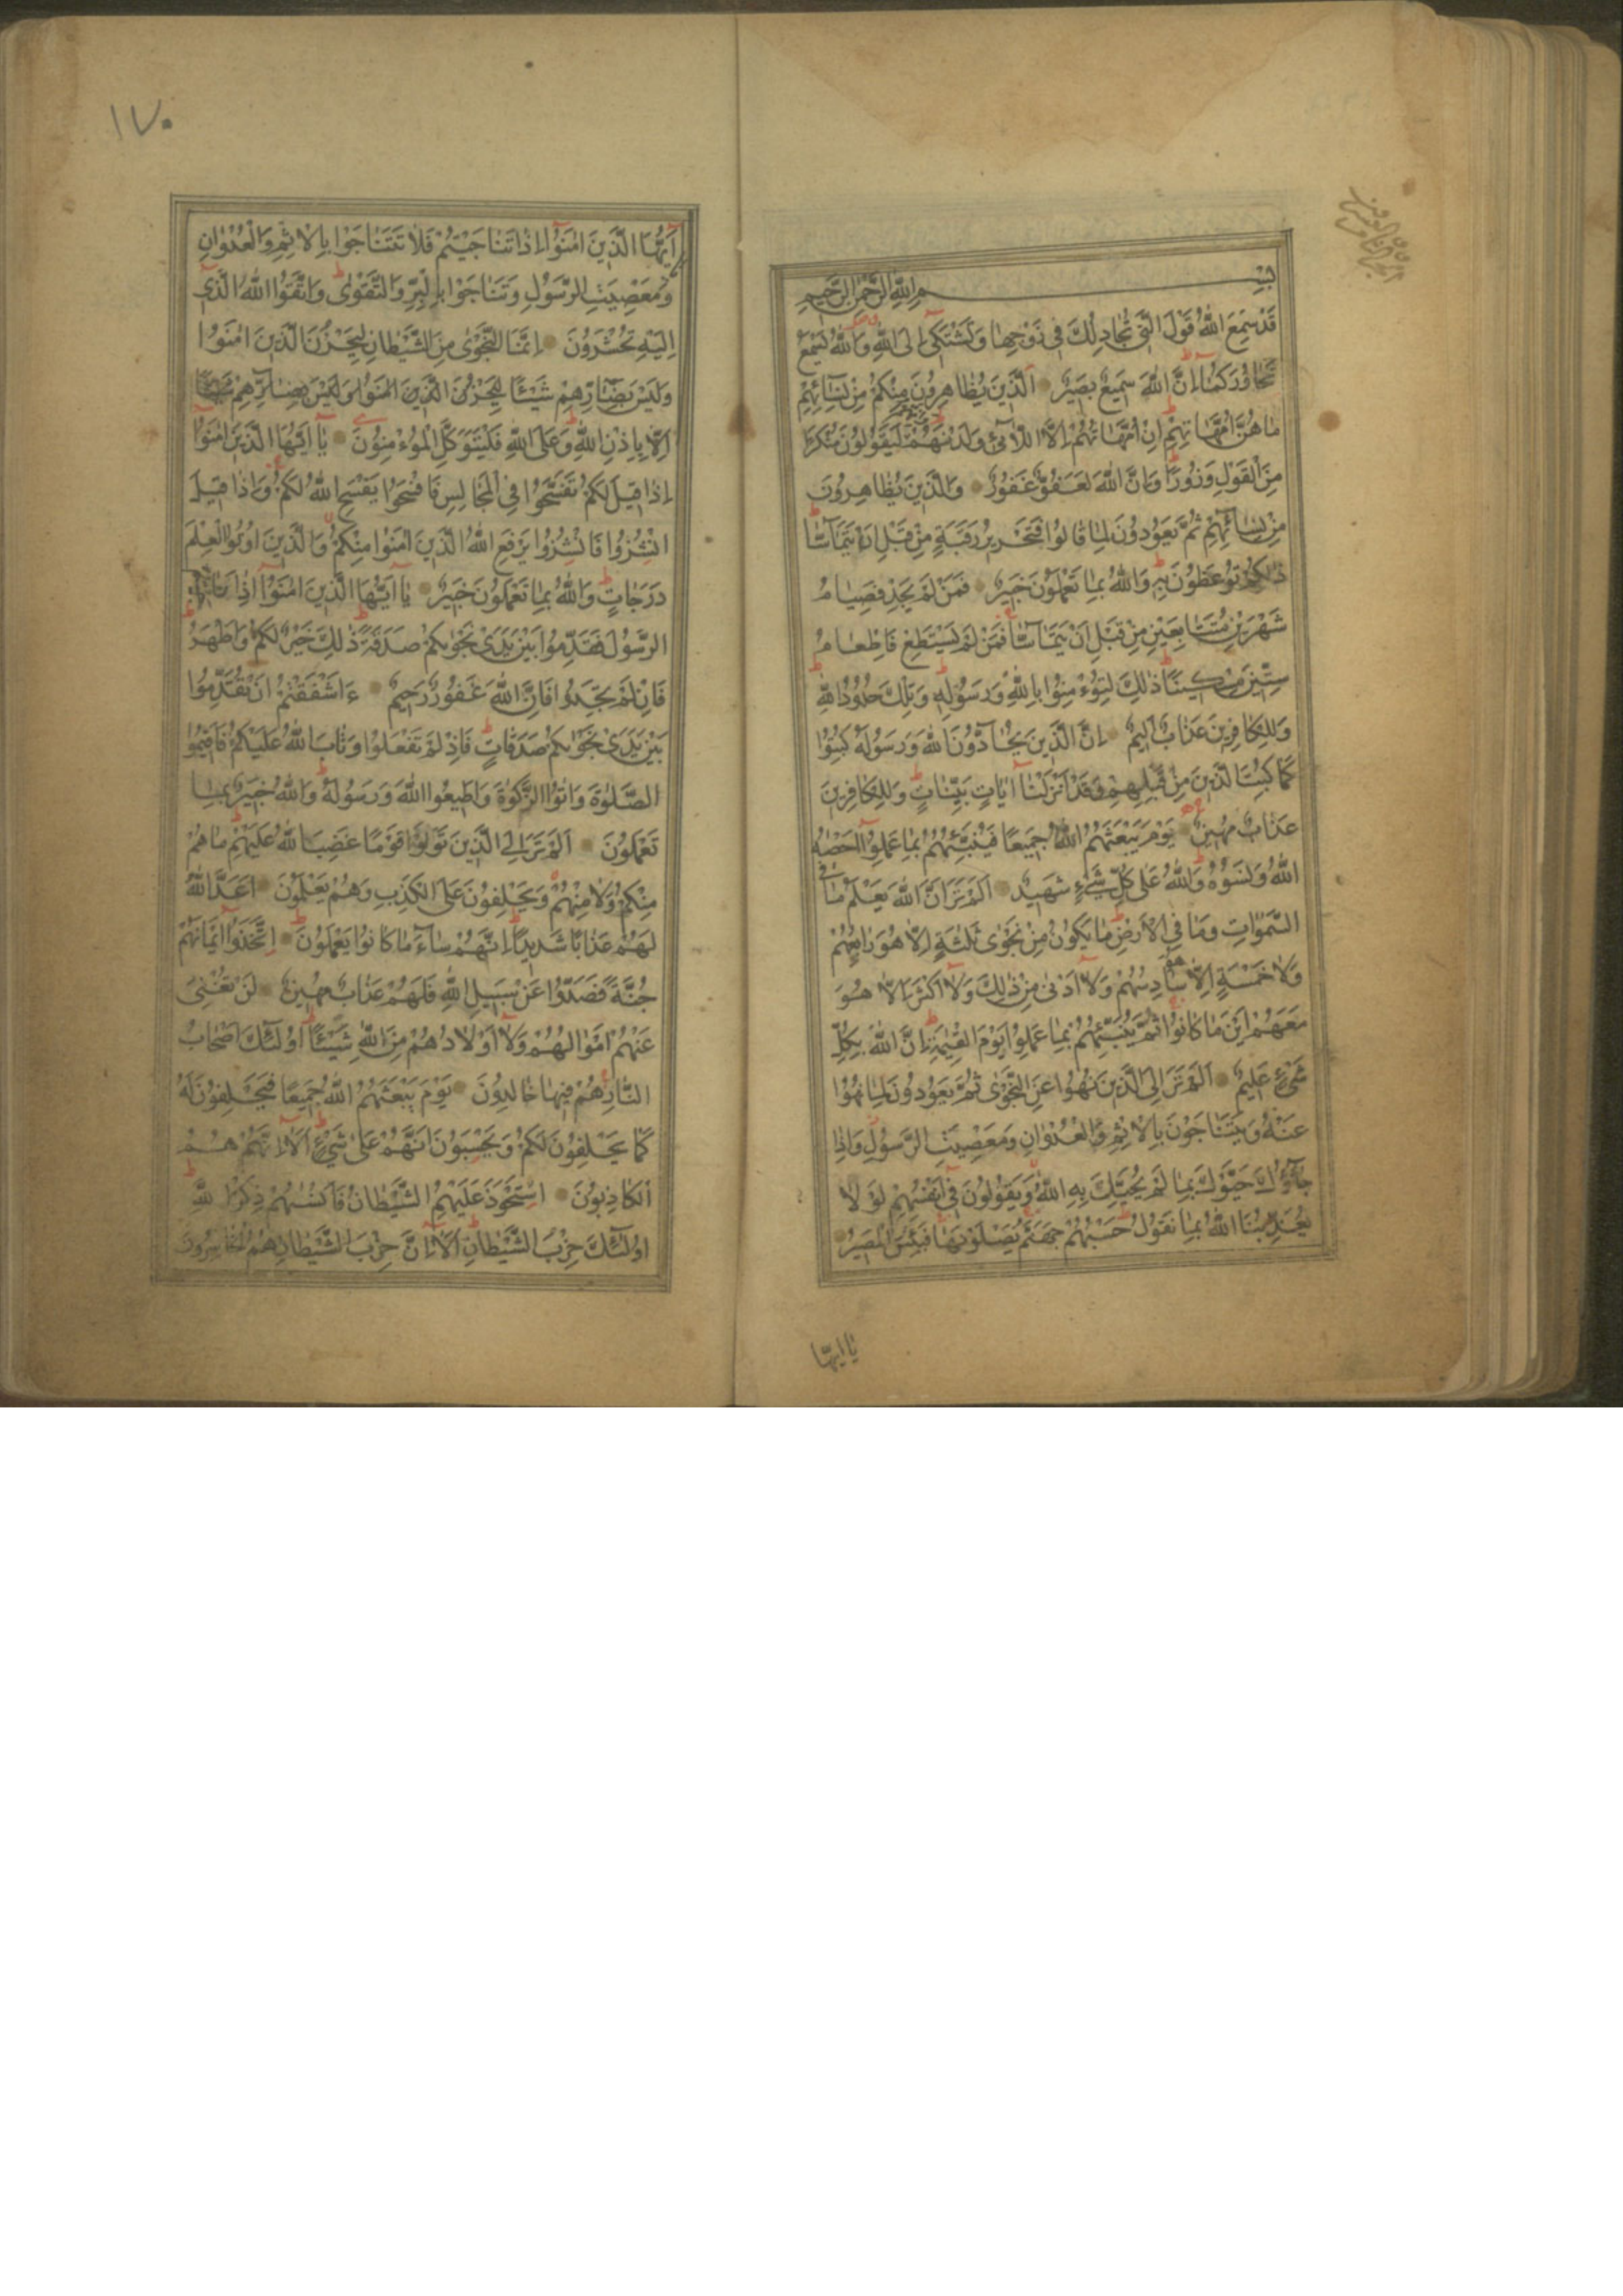 بِسْمِ اللهِ الرَّحْمٰنِ الرَّحِيمِ
قَدْ سَمِعَ اللهُ قَوْلَ الَّتِي تُجَادِلُكَ فِي زَوْجِهَا وَتَشْتَكِي إِلَى اللهِ وَاللهُ يَسْمَعُ
تَحَاوُرَكُمَا إِنَّ اللهَ سَمِيعٌ بَصِيرٌ الَّذِينَ يُظَاهِرُونَ مِنْكُمْ مِنْ نِسَائِهِمْ
مَا هُنَّ أُمَّهَاتِهِمْ إِنْ أُمَّهَاتُهُمْ إِلَّا اللَّائِي وَلَدْنَهُمْ وَإِنَّهُمْ لَيَقُولُونَ مُنْكَرًا
مِنَ الْقَوْلِ وَزُورًا وَإِنَّ اللهَ لَعَفُوٌّ غَفُورٌ وَالَّذِينَ يُظَاهِرُونَ
مِنْ نِسَائِهِمْ ثُمَّ يَعُودُونَ لِمَا قَالُوا فَتَحْرِيرُ رَقَبَةٍ مِنْ قَبْلِ أَنْ يَتَمَاسَّا
ذٰلِكُمْ تُوعَظُونَ بِهِ وَاللهُ بِمَا تَعْمَلُونَ خَبِيرٌ فَمَنْ لَمْ يَجِدْ فَصِيَامُ
شَهْرَيْنِ مُتَتَابِعَيْنِ مِنْ قَبْلِ أَنْ يَتَمَاسَّا فَمَنْ لَمْ يَسْتَطِعْ فَإِطْعَامُ
سِتِّينَ مِسْكِينًا ذٰلِكَ لِتُؤْمِنُوا بِاللهِ وَرَسُولِهِ وَتِلْكَ حُدُودُ اللهِ
وَلِلْكَافِرِينَ عَذَابٌ أَلِيمٌ إِنَّ الَّذِينَ يُحَادُّونَ اللهَ وَرَسُولَهُ كُبِتُوا
كَمَا كُبِتَ الَّذِينَ مِنْ قَبْلِهِمْ وَقَدْ أَنْزَلْنَا آيَاتٍ بَيِّنَاتٍ وَلِلْكَافِرِينَ
عَذَابٌ مُهِينٌ يَوْمَ يَبْعَثُهُمُ اللهُ جَمِيعًا فَيُنَبِّئُهُمْ بِمَا عَمِلُوا أَحْصٰهُ
اللهُ وَنَسُوهُ وَاللهُ عَلَى كُلِّ شَيْءٍ شَهِيدٌ أَلَمْ تَرَ أَنَّ اللهَ يَعْلَمُ مَا فِي
السَّمٰوَاتِ وَمَا فِي الْأَرْضِ مَا يَكُونُ مِنْ نَجْوٰى ثَلٰثَةٍ إِلَّا هُوَ رَابِعُهُمْ
وَلَا خَمْسَةٍ إِلَّا هُوَ سَادِسُهُمْ وَلَا أَدْنٰى مِنْ ذٰلِكَ وَلَا أَكْثَرَ إِلَّا هُوَ
مَعَهُمْ أَيْنَ مَا كَانُوا ثُمَّ يُنَبِّئُهُمْ بِمَا عَمِلُوا يَوْمَ الْقِيٰمَةِ إِنَّ اللهَ بِكُلِّ
شَيْءٍ عَلِيمٌ أَلَمْ تَرَ إِلَى الَّذِينَ نُهُوا عَنِ النَّجْوٰى ثُمَّ يَعُودُونَ لِمَا نُهُوا
عَنْهُ وَيَتَنَاجَوْنَ بِالْإِثْمِ وَالْعُدْوَانِ وَمَعْصِيَتِ الرَّسُولِ وَإِذَا
جَاؤُكَ حَيَّوْكَ بِمَا لَمْ يُحَيِّكَ بِهِ اللهُ وَيَقُولُونَ فِي أَنْفُسِهِمْ لَوْ لَا
يُعَذِّبُنَا اللهُ بِمَا نَقُولُ حَسْبُهُمْ جَهَنَّمُ يَصْلَوْنَهَا فَبِئْسَ الْمَصِيرُ
يَا أَيُّهَا
١٧٠
أَيُّهَا الَّذِينَ اٰمَنُوا إِذَا تَنَاجَيْتُمْ فَلَا تَتَنَاجَوْا بِالْإِثْمِ وَالْعُدْوَانِ
وَمَعْصِيَتِ الرَّسُولِ وَتَنَاجَوْا بِالْبِرِّ وَالتَّقْوٰى وَاتَّقُوا اللهَ الَّذِي
إِلَيْهِ تُحْشَرُونَ إِنَّمَا النَّجْوٰى مِنَ الشَّيْطَانِ لِيَحْزُنَ الَّذِينَ اٰمَنُوا
وَلَيْسَ بِضَارِّهِمْ شَيْئًا لِيَحْزُنَ الَّذِينَ اٰمَنُوا وَلَيْسَ بِضَارِّهِمْ شَيْئًا
إِلَّا بِإِذْنِ اللهِ وَعَلَى اللهِ فَلْيَتَوَكَّلِ الْمُؤْمِنُونَ يَا أَيُّهَا الَّذِينَ اٰمَنُوا
إِذَا قِيلَ لَكُمْ تَفَسَّحُوا فِي الْمَجَالِسِ فَافْسَحُوا يَفْسَحِ اللهُ لَكُمْ وَإِذَا قِيلَ
انْشُزُوا فَانْشُزُوا يَرْفَعِ اللهُ الَّذِينَ اٰمَنُوا مِنْكُمْ وَالَّذِينَ أُوتُوا الْعِلْمَ
دَرَجَاتٍ وَاللهُ بِمَا تَعْمَلُونَ خَبِيرٌ يَا أَيُّهَا الَّذِينَ اٰمَنُوا إِذَا نَاجَيْتُمُ
الرَّسُولَ فَقَدِّمُوا بَيْنَ يَدَيْ نَجْوٰىكُمْ صَدَقَةً ذٰلِكَ خَيْرٌ لَكُمْ وَأَطْهَرُ
فَإِنْ لَمْ تَجِدُوا فَإِنَّ اللهَ غَفُورٌ رَحِيمٌ ءَأَشْفَقْتُمْ أَنْ تُقَدِّمُوا
بَيْنَ يَدَيْ نَجْوٰىكُمْ صَدَقَاتٍ فَإِذْ لَمْ تَفْعَلُوا وَتَابَ اللهُ عَلَيْكُمْ فَأَقِيمُوا
الصَّلٰوةَ وَاٰتُوا الزَّكٰوةَ وَأَطِيعُوا اللهَ وَرَسُولَهُ وَاللهُ خَبِيرٌ بِمَا
تَعْمَلُونَ أَلَمْ تَرَ إِلَى الَّذِينَ تَوَلَّوْا قَوْمًا غَضِبَ اللهُ عَلَيْهِمْ مَا هُمْ
مِنْكُمْ وَلَا مِنْهُمْ وَيَحْلِفُونَ عَلَى الْكَذِبِ وَهُمْ يَعْلَمُونَ أَعَدَّ اللهُ
لَهُمْ عَذَابًا شَدِيدًا إِنَّهُمْ سَاءَ مَا كَانُوا يَعْمَلُونَ اتَّخَذُوا أَيْمَانَهُمْ
جُنَّةً فَصَدُّوا عَنْ سَبِيلِ اللهِ فَلَهُمْ عَذَابٌ مُهِينٌ لَنْ تُغْنِيَ
عَنْهُمْ أَمْوَالُهُمْ وَلَا أَوْلَادُهُمْ مِنَ اللهِ شَيْئًا أُولٰئِكَ أَصْحَابُ
النَّارِ هُمْ فِيهَا خَالِدُونَ يَوْمَ يَبْعَثُهُمُ اللهُ جَمِيعًا فَيَحْلِفُونَ لَهُ
كَمَا يَحْلِفُونَ لَكُمْ وَيَحْسَبُونَ أَنَّهُمْ عَلٰى شَيْءٍ أَلَا إِنَّهُمْ هُمُ
الْكَاذِبُونَ اسْتَحْوَذَ عَلَيْهِمُ الشَّيْطَانُ فَأَنْسٰىهُمْ ذِكْرَ اللهِ
أُولٰئِكَ حِزْبُ الشَّيْطَانِ أَلَا إِنَّ حِزْبَ الشَّيْطَانِ هُمُ الْخَاسِرُونَ